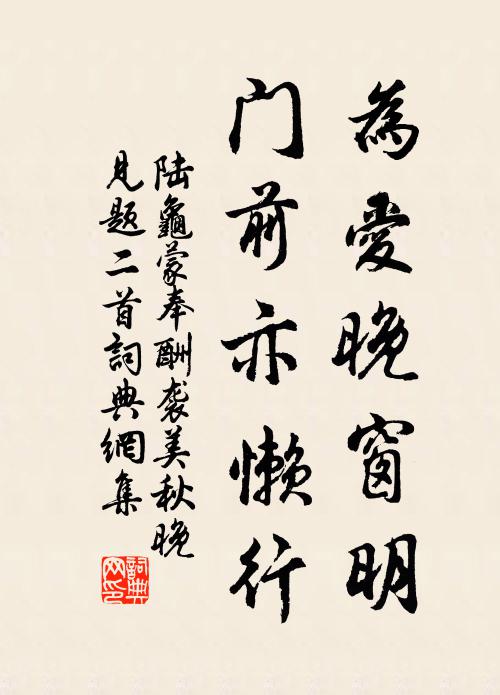 為愛晚窗明
门前亦懒行
陆龜蒙奉酬袭美秋晚
见题二首詞典網集
詞典网印